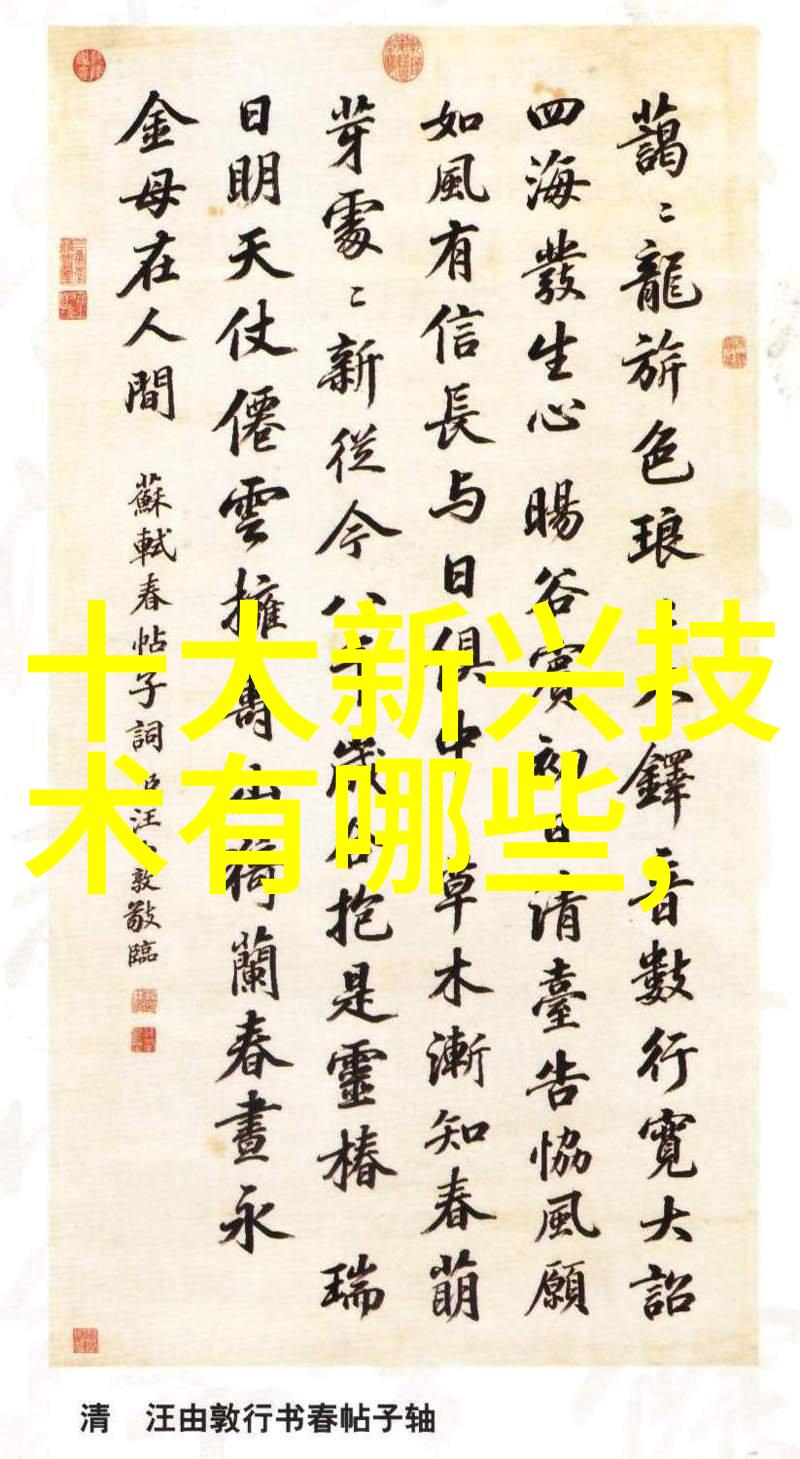 藹〻龍旂色琅〻木鐸音數行寬大詔
四海發生心 暘谷賓初日清臺告協風願
如風有信長与日俱中 草木漸知春萌
芽處〻新從今八千歲合抱是靈椿 瑞
日明天仗僊雲擁壽山猗蘭春晝永
金母在人間 蘇軾春帖子詞 臣汪由敦敬臨
十大新兴技
术有哪些,
清 汪由敦行书春帖子轴